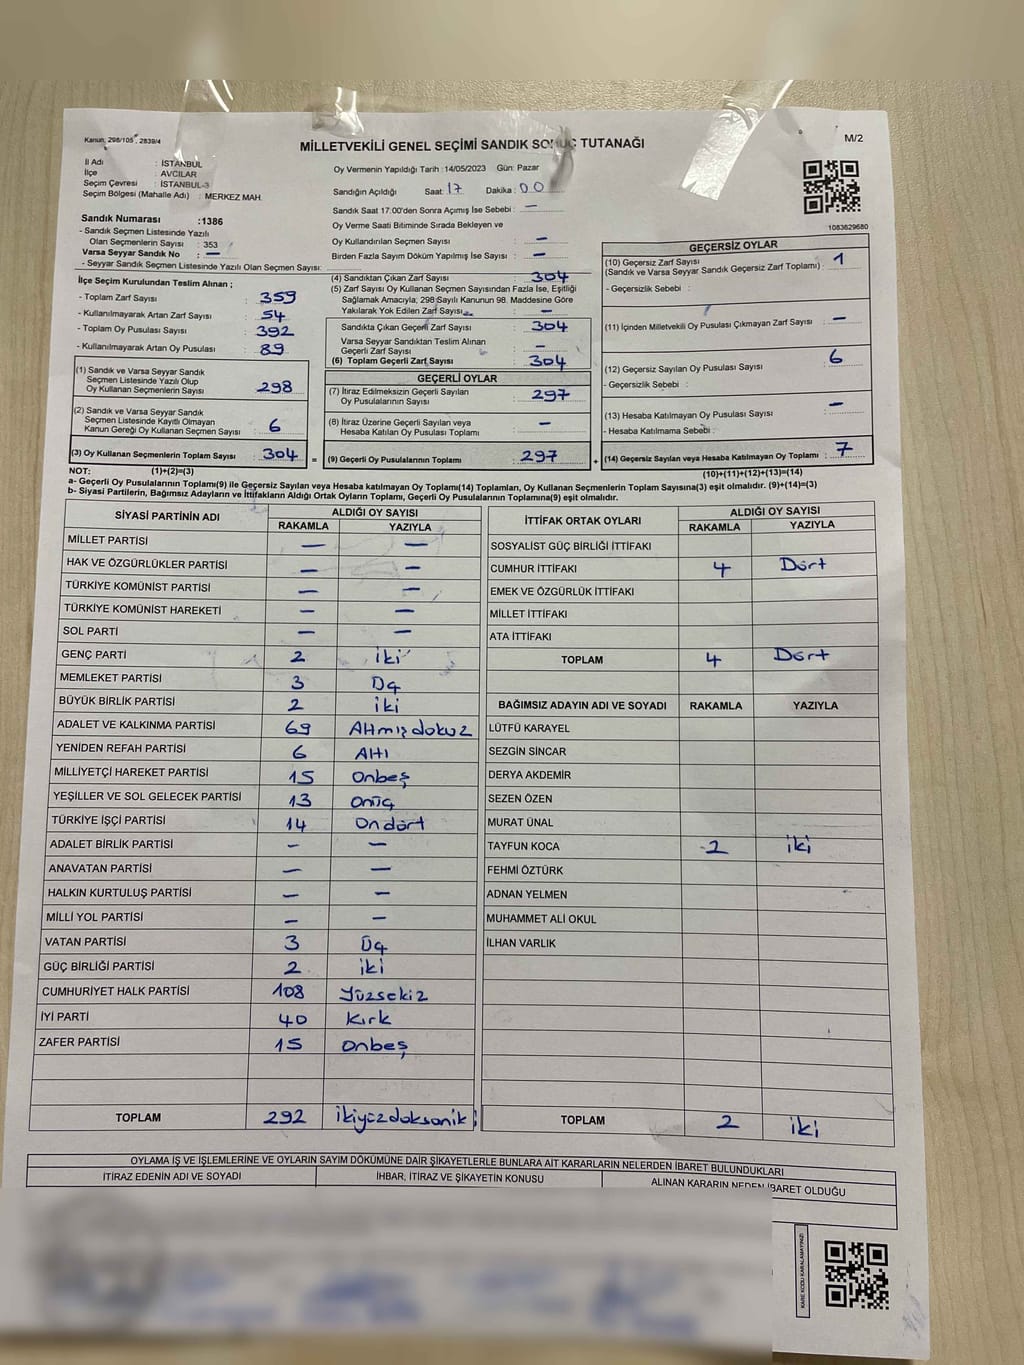 Kanun: 298/105 , 2839/4
MİLLETVEKİLİ GENEL SEÇİMİ SANDIK SONUÇ TUTANAĞI
M/2
İl Adı : İSTANBUL
İlçe : AVCILAR
Seçim Çevresi : İSTANBUL-3
Seçim Bölgesi (Mahalle Adı) : MERKEZ MAH.
Sandık Numarası :1386
- Sandık Seçmen Listesinde Yazılı
Olan Seçmenlerin Sayısı : 353
Varsa Seyyar Sandık No : —
- Seyyar Sandık Seçmen Listesinde Yazılı Olan Seçmen Sayısı:
Oy Vermenin Yapıldığı Tarih :14/05/2023 Gün: Pazar
Sandığın Açıldığı Saat: 17 Dakika : 00
Sandık Saat 17:00'den Sonra Açımış İse Sebebi : —
Oy Verme Saati Bitiminde Sırada Bekleyen ve
Oy Kullandırılan Seçmen Sayısı : —
Birden Fazla Sayım Döküm Yapılmış İse Sayısı : —
1083629680
İlçe Seçim Kurulundan Teslim Alınan ;
- Toplam Zarf Sayısı : 359
- Kullanılmayarak Artan Zarf Sayısı : 54
- Toplam Oy Pusulası Sayısı : 392
- Kullanılmayarak Artan Oy Pusulası : 89
(1) Sandık ve Varsa Seyyar Sandık
Seçmen Listesinde Yazılı Olup
Oy Kullanan Seçmenlerin Sayısı : 298
(2) Sandık ve Varsa Seyyar Sandık
Seçmen Listesinde Kayıtlı Olmayan
Kanun Gereği Oy Kullanan Seçmen Sayısı : 6
(3) Oy Kullanan Seçmenlerin Toplam Sayısı : 304 =
(4) Sandıktan Çıkan Zarf Sayısı : 304
(5) Zarf Sayısı Oy Kullanan Seçmen Sayısından Fazla İse, Eşitliği
Sağlamak Amacıyla; 298 Sayılı Kanunun 98. Maddesine Göre
Yakılarak Yok Edilen Zarf Sayısı : —
Sandıkta Çıkan Geçerli Zarf Sayısı : 304
Varsa Seyyar Sandıktan Teslim Alınan
Geçerli Zarf Sayısı : —
(6) Toplam Geçerli Zarf Sayısı : 304
GEÇERLİ OYLAR
(7) İtiraz Edilmeksizin Geçerli Sayılan
Oy Pusulalarının Sayısı : 297
(8) İtiraz Üzerine Geçerli Sayılan veya
Hesaba Katılan Oy Pusulası Toplamı : —
(9) Geçerli Oy Pusulalarının Toplamı : 297 +
GEÇERSİZ OYLAR
(10) Geçersiz Zarf Sayısı
(Sandık ve Varsa Seyyar Sandık Geçersiz Zarf Toplamı) : 1
- Geçersizlik Sebebi :
(11) İçinden Milletvekili Oy Pusulası Çıkmayan Zarf Sayısı : —
(12) Geçersiz Sayılan Oy Pusulası Sayısı : 6
- Geçersizlik Sebebi :
(13) Hesaba Katılmayan Oy Pusulası Sayısı : —
- Hesaba Katılmama Sebebi :
(14) Geçersiz Sayılan veya Hesaba Katılmayan Oy Toplamı : 7
NOT: (1)+(2)=(3) (10)+(11)+(12)+(13)=(14)
a- Geçerli Oy Pusulaları Toplamı(9) ile Geçersiz Sayılan veya Hesaba katılmayan Oy Toplamı(14) Toplamları, Oy Kullanan Seçmenlerin Toplam Sayısına(3) eşit olmalıdır. (9)+(14)=(3)
b- Siyasi Partilerin, Bağımsız Adayların ve İttifakların Aldığı Ortak Oyların Toplamı, Geçerli Oy Pusulalarının Toplamına(9) eşit olmalıdır.
SİYASİ PARTİNİN ADI ALDIĞI OY SAYISI
RAKAMLA YAZIYLA
MİLLET PARTİSİ — —
HAK VE ÖZGÜRLÜKLER PARTİSİ — —
TÜRKİYE KOMÜNİST PARTİSİ — —
TÜRKİYE KOMÜNİST HAREKETİ — —
SOL PARTİ — —
GENÇ PARTİ 2 iki
MEMLEKET PARTİSİ 3 Üç
BÜYÜK BİRLİK PARTİSİ 2 iki
ADALET VE KALKINMA PARTİSİ 69 Altmışdokuz
YENİDEN REFAH PARTİSİ 6 Altı
MİLLİYETÇİ HAREKET PARTİSİ 15 Onbeş
YEŞİLLER VE SOL GELECEK PARTİSİ 13 Onüç
TÜRKİYE İŞÇİ PARTİSİ 14 Ondört
ADALET BİRLİK PARTİSİ — —
ANAVATAN PARTİSİ — —
HALKIN KURTULUŞ PARTİSİ — —
MİLLİ YOL PARTİSİ — —
VATAN PARTİSİ 3 Üç
GÜÇ BİRLİĞİ PARTİSİ 2 iki
CUMHURİYET HALK PARTİSİ 108 Yüzsekiz
İYİ PARTİ 40 Kırk
ZAFER PARTİSİ 15 Onbeş
TOPLAM 292 ikiyüzdoksaniki
İTTİFAK ORTAK OYLARI ALDIĞI OY SAYISI
RAKAMLA YAZIYLA
SOSYALİST GÜÇ BİRLİĞİ İTTİFAKI
CUMHUR İTTİFAKI 4 Dört
EMEK VE ÖZGÜRLÜK İTTİFAKI
MİLLET İTTİFAKI
ATA İTTİFAKI
TOPLAM 4 Dört
BAĞIMSIZ ADAYIN ADI VE SOYADI RAKAMLA YAZIYLA
LÜTFÜ KARAYEL
SEZGİN SİNCAR
DERYA AKDEMİR
SEZEN ÖZEN
MURAT ÜNAL
TAYFUN KOCA 2 iki
FEHMİ ÖZTÜRK
ADNAN YELMEN
MUHAMMET ALİ OKUL
İLHAN VARLIK
TOPLAM 2 iki
OYLAMA İŞ VE İŞLEMLERİNE VE OYLARIN SAYIM DÖKÜMÜNE DAİR ŞİKAYETLERLE BUNLARA AİT KARARLARIN NELERDEN İBARET BULUNDUKLARI
İTİRAZ EDENİN ADI VE SOYADI İHBAR, İTİRAZ VE ŞİKAYETİN KONUSU ALINAN KARARIN NEDEN İBARET OLDUĞU
KARE KODU KARALAMAYINIZ!